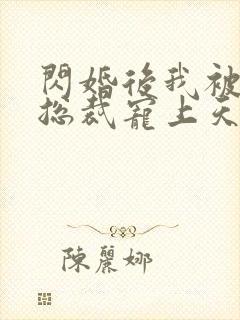 閃婚後我被
總裁寵上天
陳麗娜